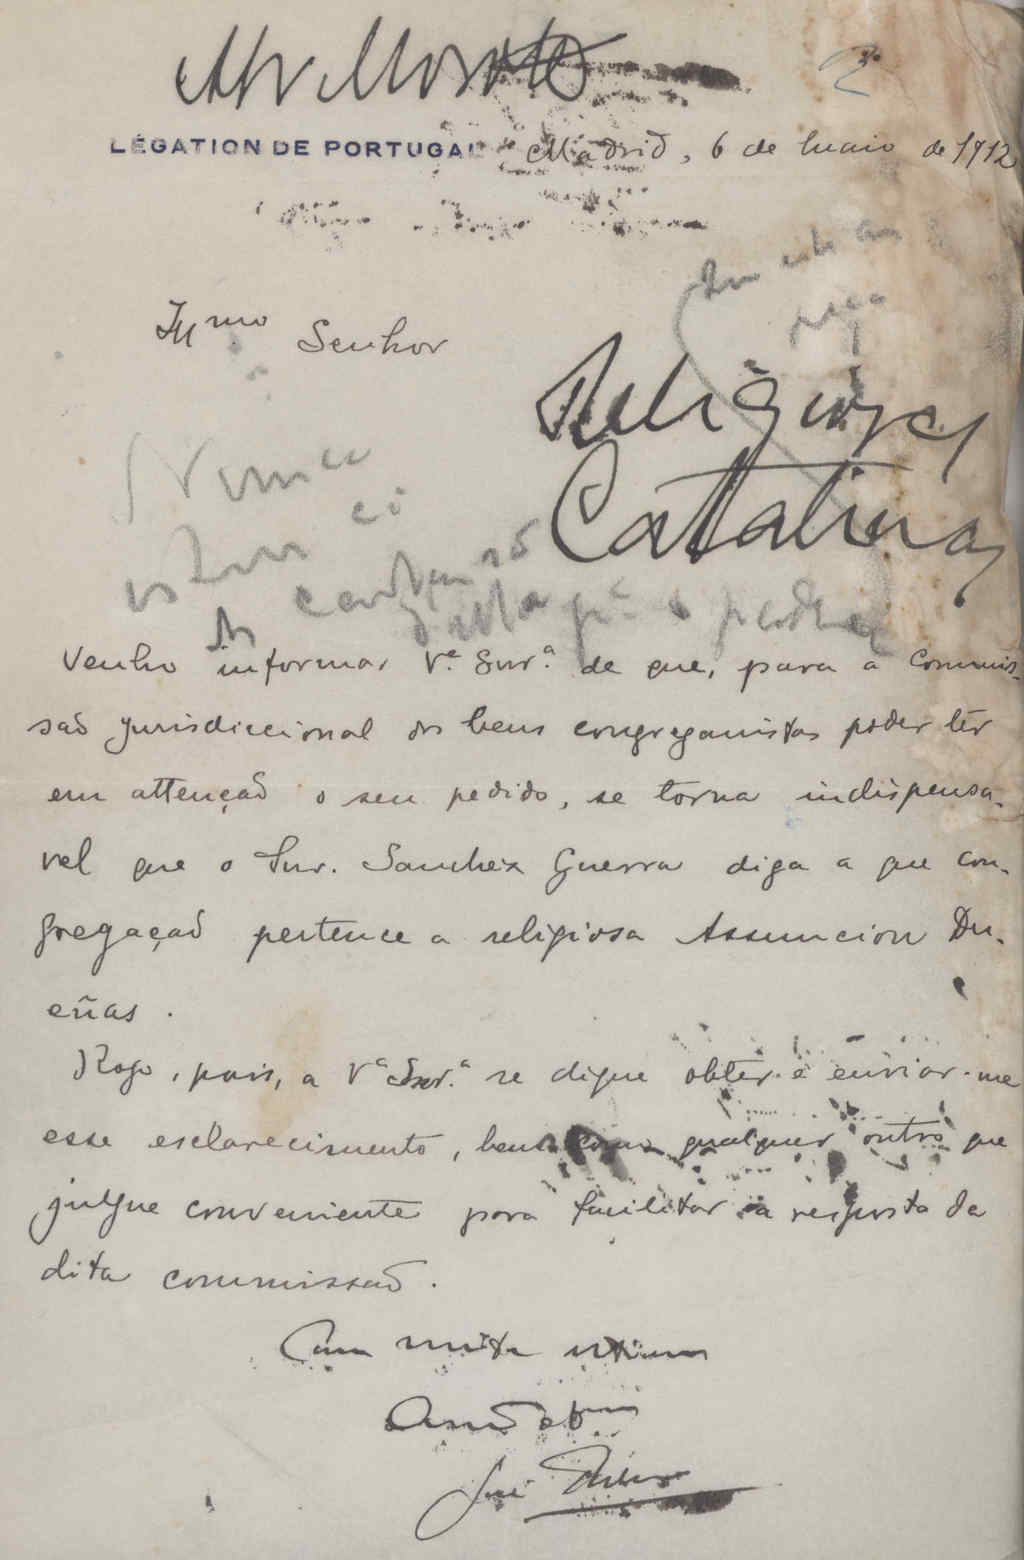 LÉGATION DE PORTUGAL Madrid, 6 de Maio de 1912
Illmo Senhor
Religiosas
Catalinas
Nunca
Venho informar V.ª Snr.ª de que, para a Commis-
são jurisdiccional dos bens congreganistas poder ter
em attenção o seu pedido, se torna indispensa-
vel que o Snr. Sanchez Guerra diga a que con-
gregação pertence a religiosa Assuncion Du-
eñas.
Rogo, pois, a V.ª Snr.ª se digne obter e enviar-me
esse esclarecimento, bem como qualquer outro que
julgue conveniente para facilitar a resposta da
dita commissão.
Com muita estima
José